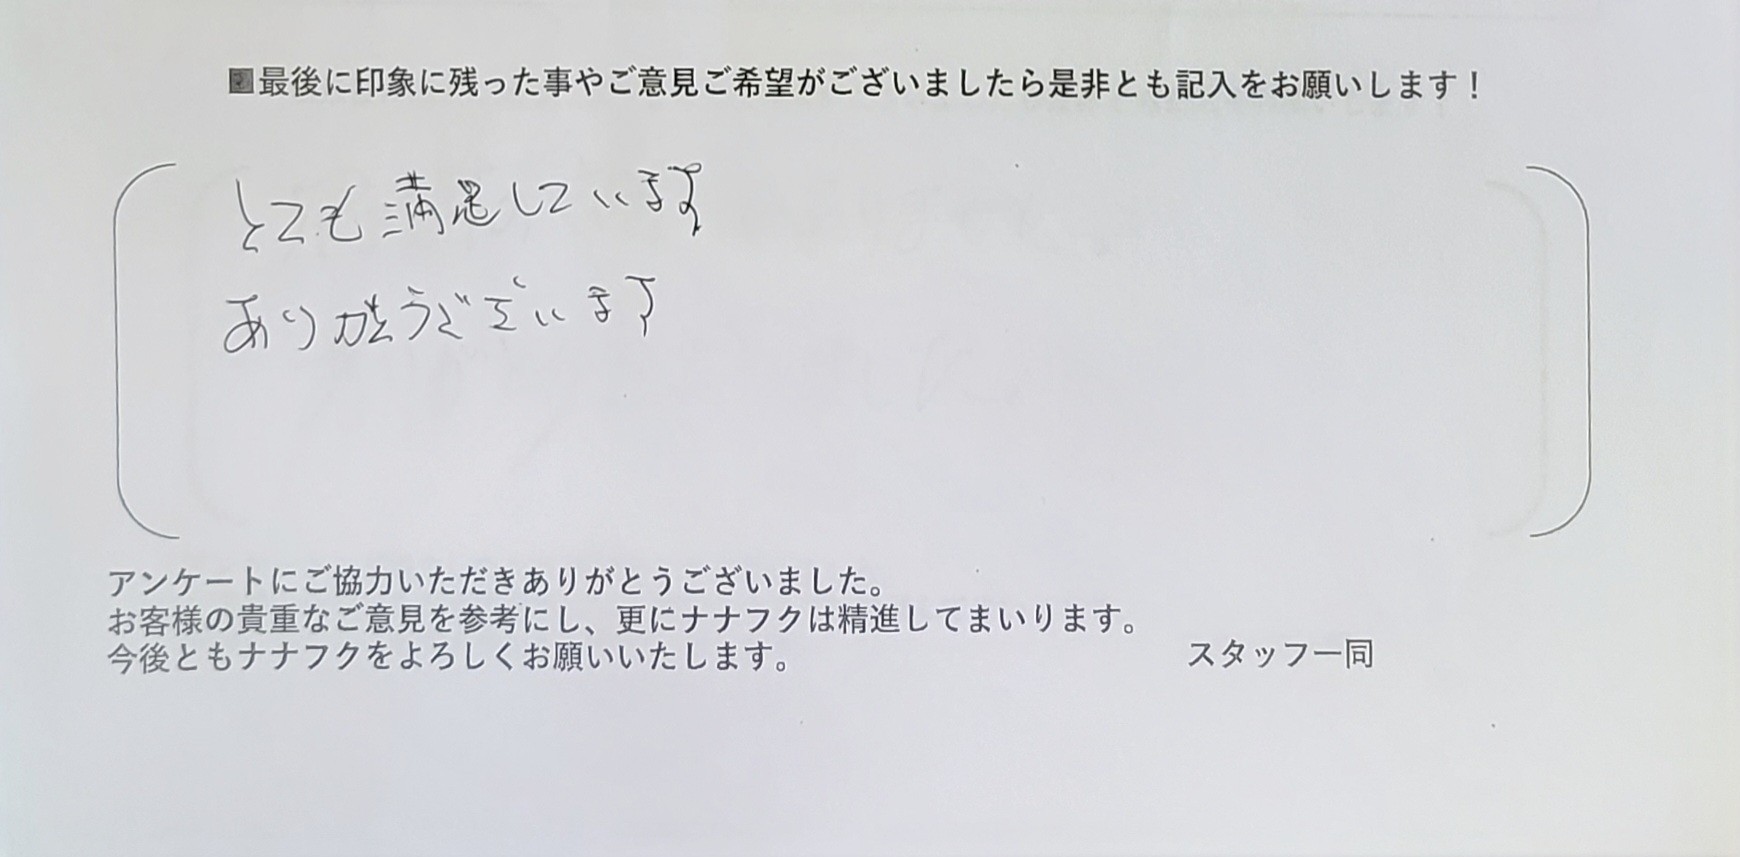 ■最後に印象に残った事やご意見ご希望がございましたら是非とも記入をお願いします！
とても満足しています
ありがとうございます
アンケートにご協力いただきありがとうございました。
お客様の貴重なご意見を参考にし、更にナナフクは精進してまいります。
今後ともナナフクをよろしくお願いいたします。 スタッフ一同